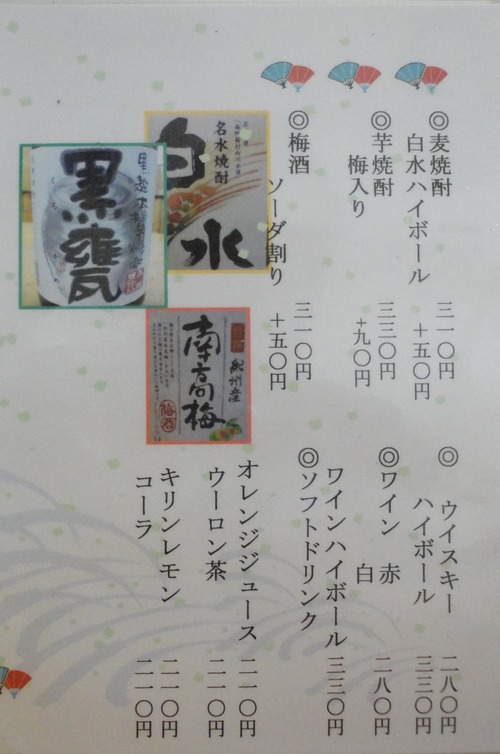 ◎麦焼酎 三一〇円
白水ハイボール +五〇円
◎芋焼酎 三三〇円
梅入り +九〇円
◎梅酒 三一〇円
ソーダ割り +五〇円
名水焼酎
白水
黒甕
紀州産
南高梅
梅酒
◎ウイスキー 二八〇円
ハイボール 三三〇円
◎ワイン 赤 白 二八〇円
ワインハイボール 三三〇円
◎ソフトドリンク
オレンジジュース 二一〇円
ウーロン茶 二一〇円
キリンレモン 二一〇円
コーラ 二一〇円